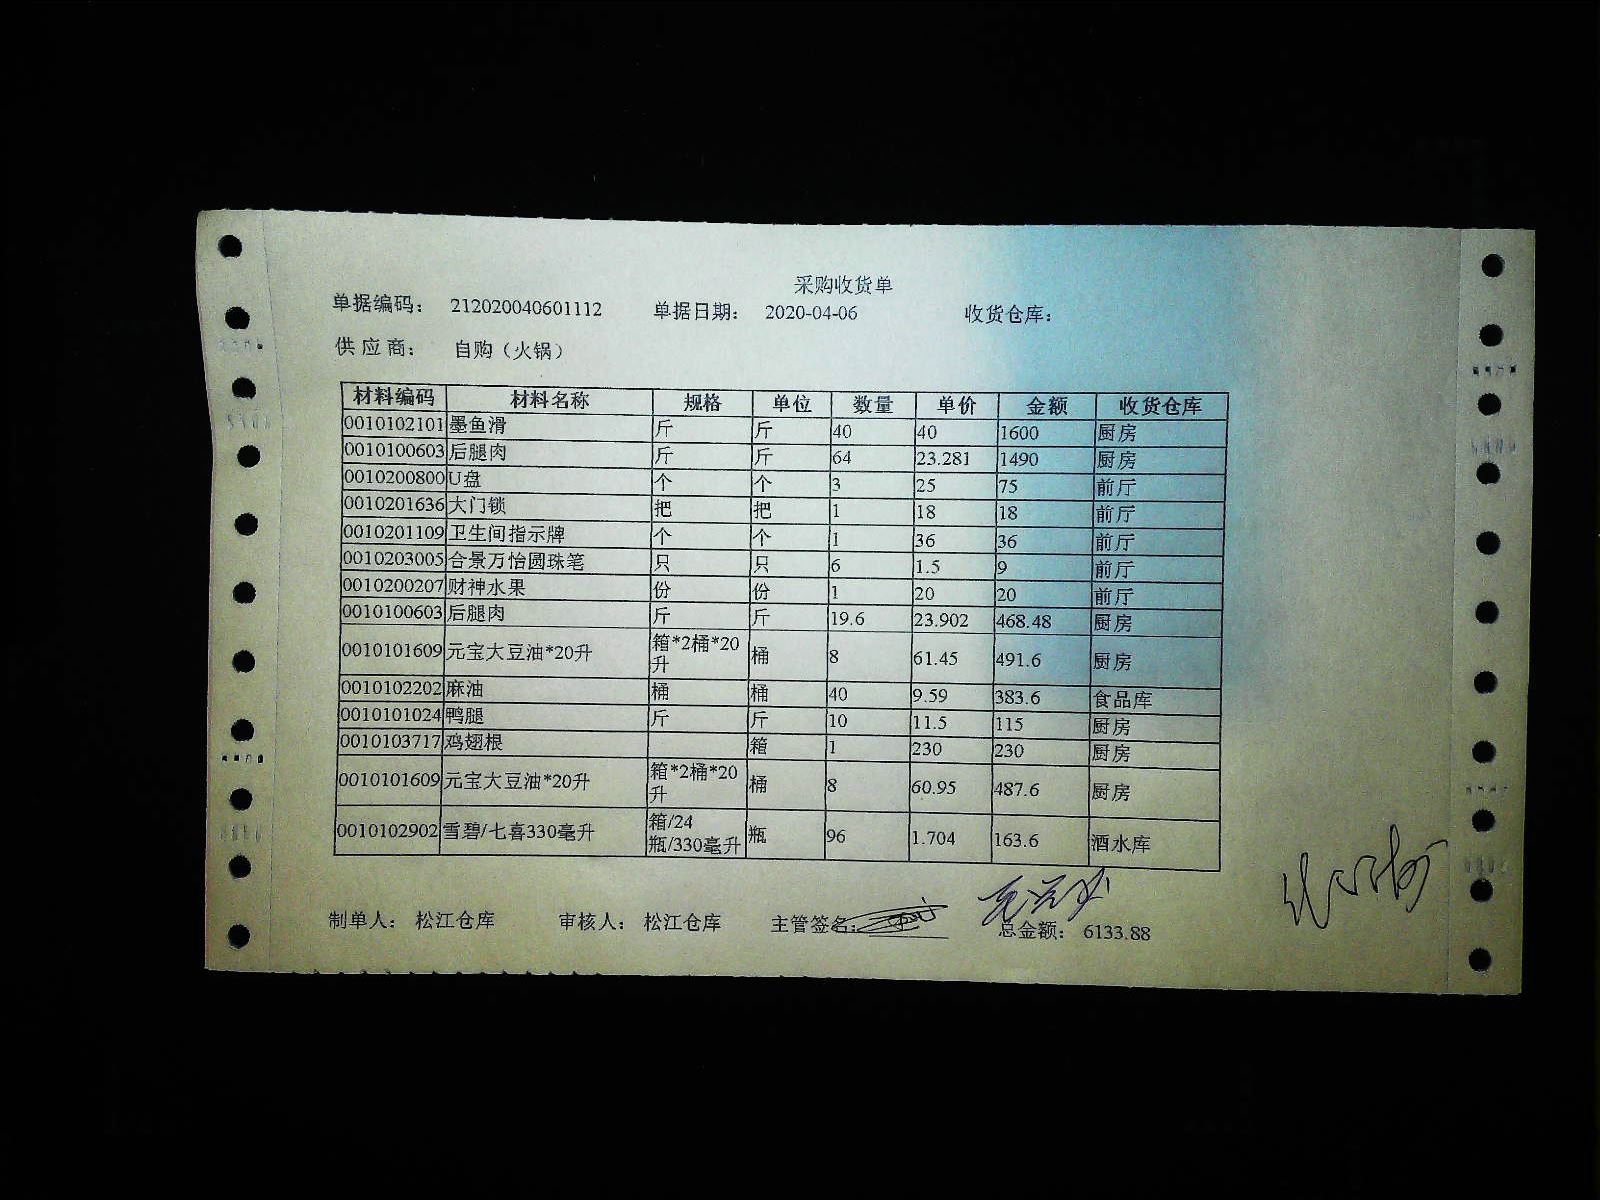 采购收货单
单据编码： 212020040601112 单据日期： 2020-04-06 收货仓库：
供应商： 自购（火锅）
材料编码 材料名称 规格 单位 数量 单价 金额 收货仓库
0010102101 墨鱼滑 斤 斤 40 40 1600 厨房
0010100603 后腿肉 斤 斤 64 23.281 1490 厨房
0010200800 U盘 个 个 3 25 75 前厅
0010201636 大门锁 把 把 1 18 18 前厅
0010201109 卫生间指示牌 个 个 1 36 36 前厅
0010203005 合景万怡圆珠笔 只 只 6 1.5 9 前厅
0010200207 财神水果 份 份 1 20 20 前厅
0010100603 后腿肉 斤 斤 19.6 23.902 468.48 厨房
0010101609 元宝大豆油*20升 箱*2桶*20升 桶 8 61.45 491.6 厨房
0010102202 麻油 桶 桶 40 9.59 383.6 食品库
0010101024 鸭腿 斤 斤 10 11.5 115 厨房
0010103717 鸡翅根 箱 1 230 230 厨房
0010101609 元宝大豆油*20升 箱*2桶*20升 桶 8 60.95 487.6 厨房
0010102902 雪碧/七喜330毫升 箱/24瓶/330毫升 瓶 96 1.704 163.6 酒水库
制单人： 松江仓库 审核人： 松江仓库 主管签名： 总金额： 6133.88